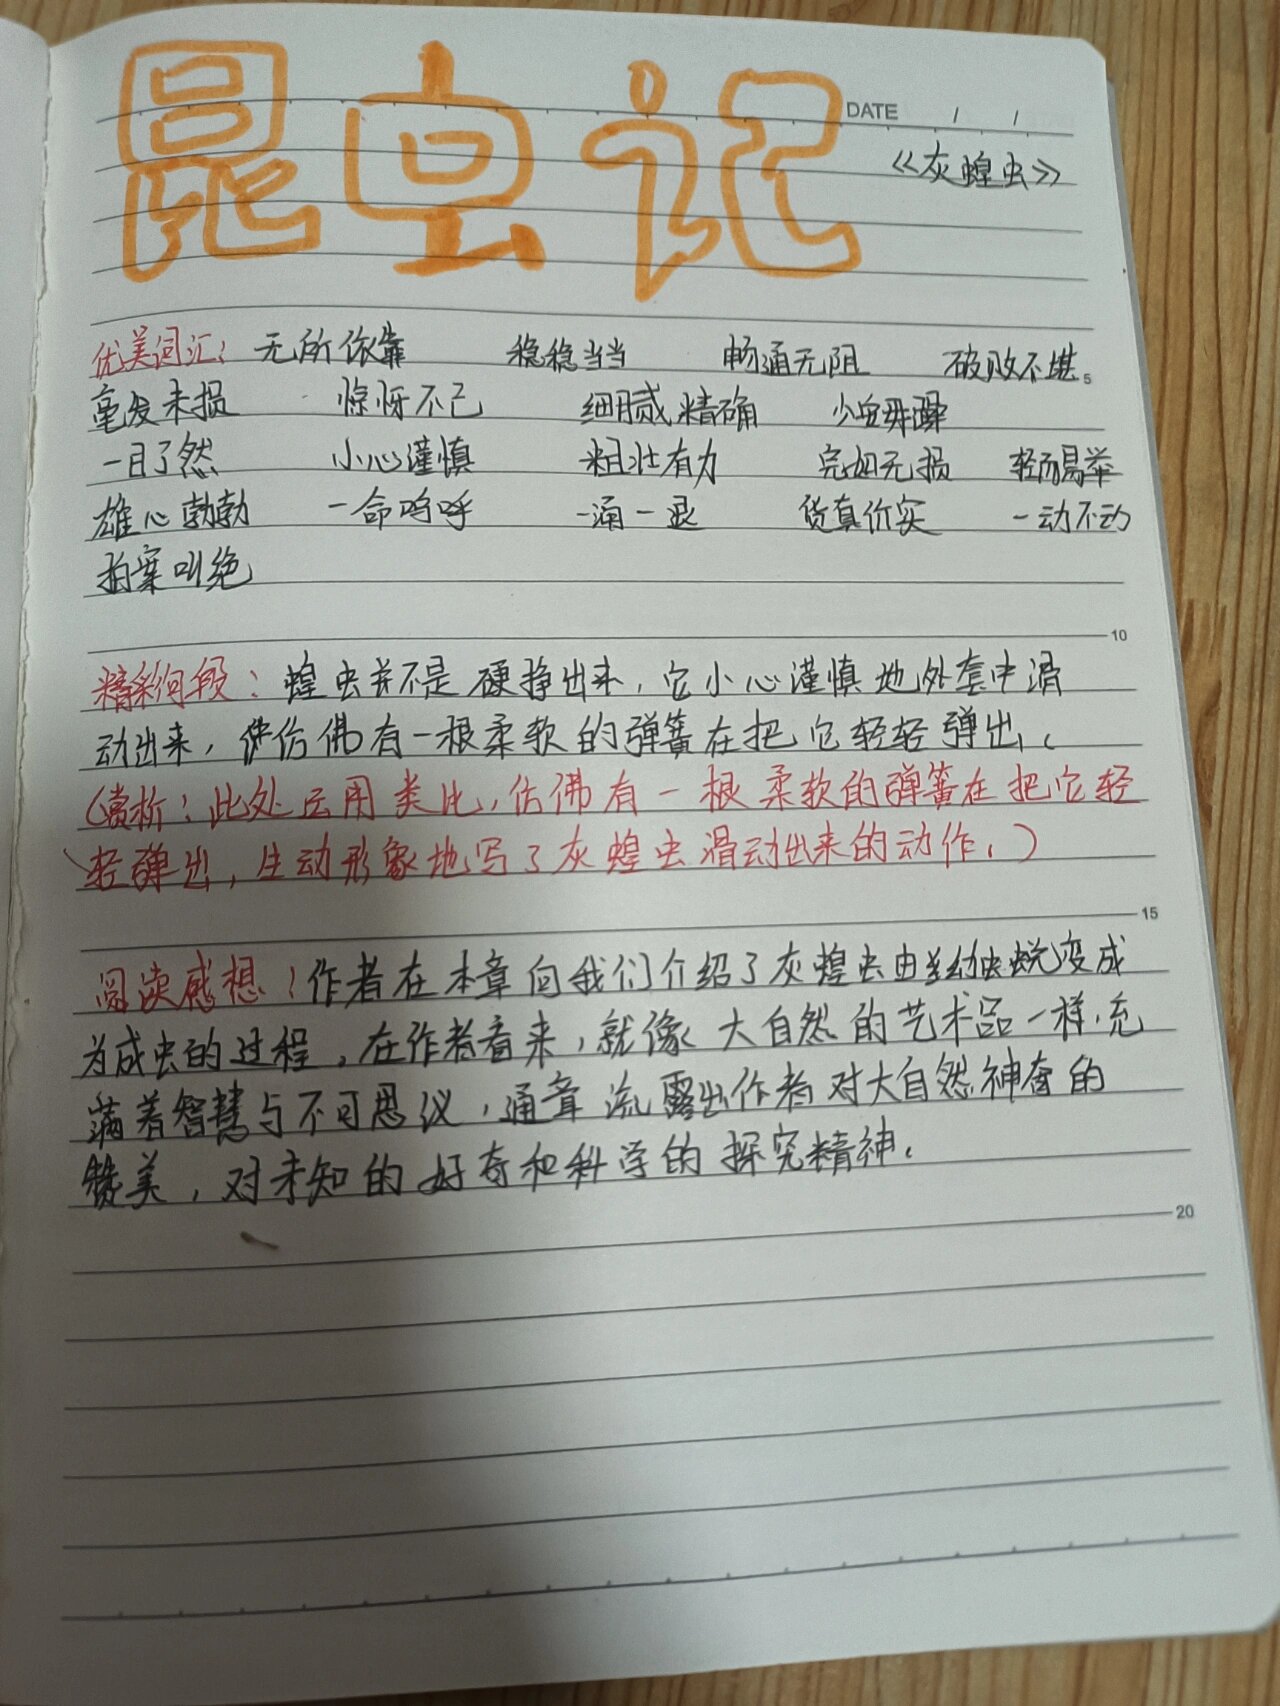 昆虫记
DATE / /
《灰蝗虫》
优美词汇: 无所依靠 稳稳当当 畅通无阻 破败不堪。
5
毫发未损 惊呀不已 细腻精确 少安毋躁
一目了然 小心谨慎 粗壮有力 完好无损 轻而易举
雄心勃勃 一命呜呼 一涌一退 货真价实 一动不动
拍案叫绝
10
精彩句段: 蝗虫并不是硬挣出来,它小心谨慎地外套中滑
动出来,仿佛有一根柔软的弹簧在把它轻轻弹出.(
(赏析:此处运用类比,仿佛有一根柔软的弹簧在把它轻
轻弹出,生动形象地写了灰蝗虫滑动出来的动作.)
15
阅读感想:作者在本章向我们介绍了灰蝗虫由幼虫蜕变成
为成虫的过程,在作者看来,就像大自然的艺术品一样,充
满着智慧与不可思议,通章流露出作者对大自然神奇的
赞美,对未知的好奇和科学的探究精神.
20